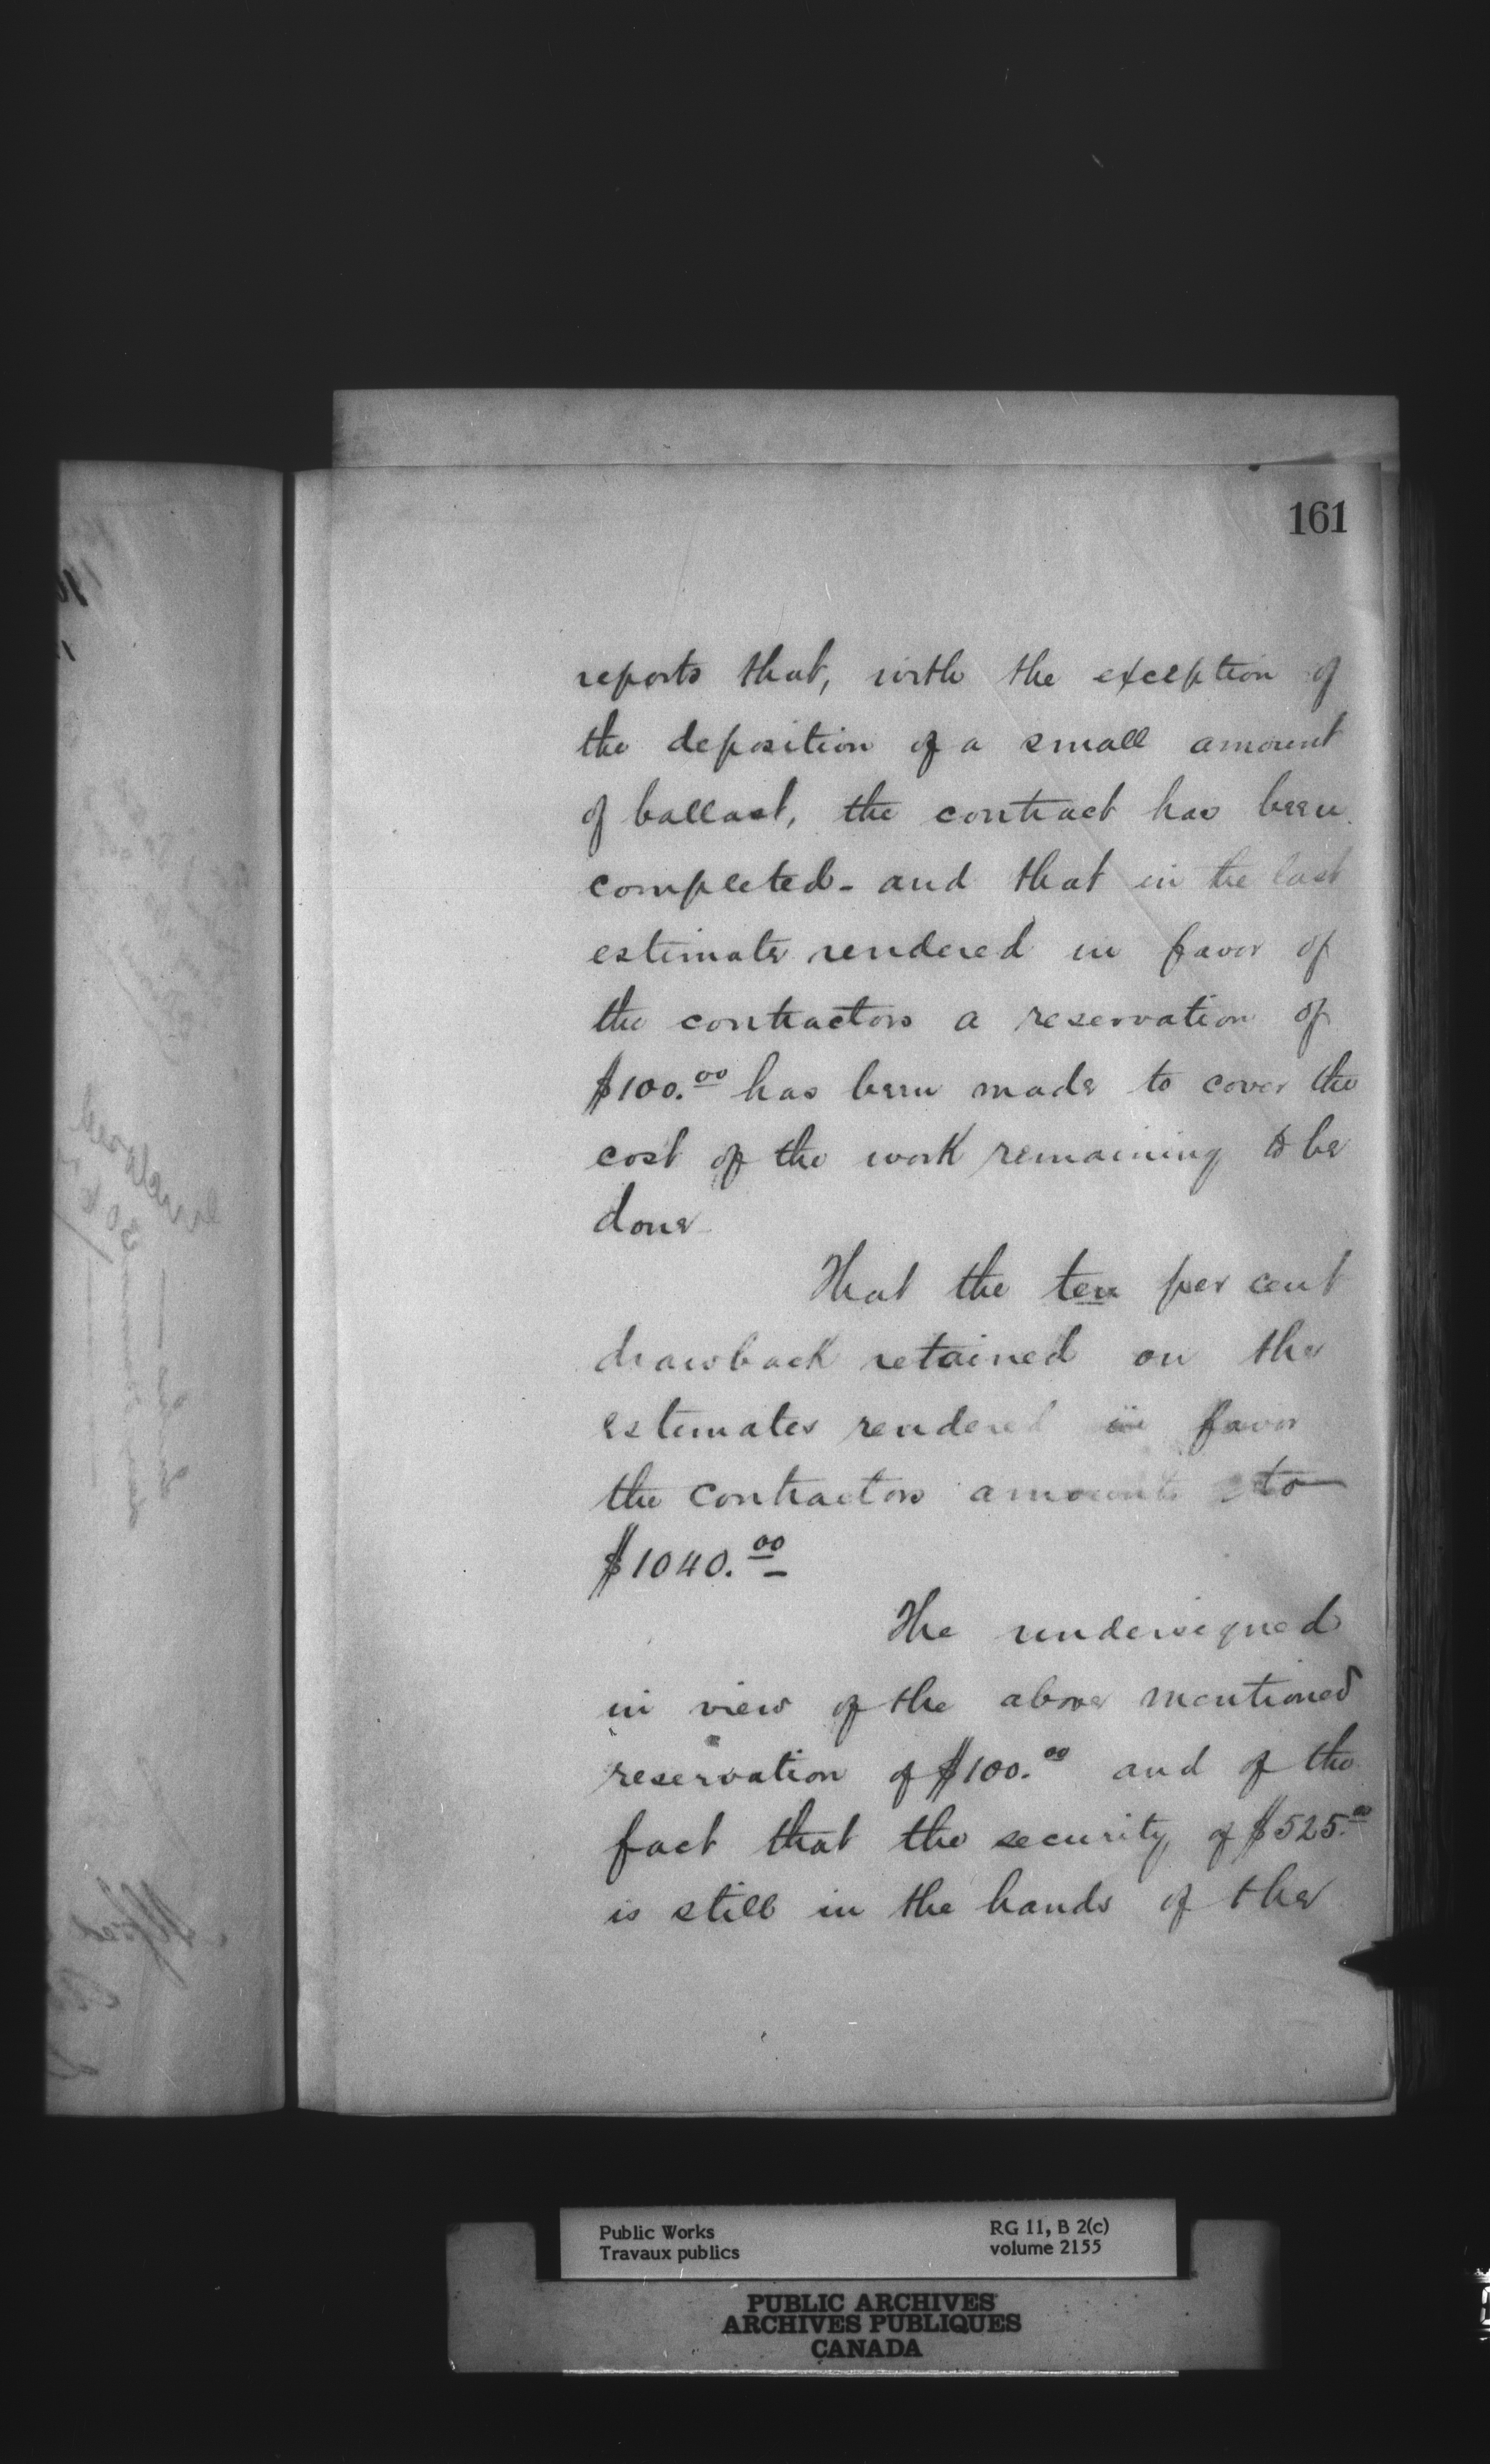 161
reports that, with the exception of
the deposition of a small amount
of ballast, the contract has been
completed - and that in the last
estimate rendered in favor of
the contractors a reservation of
$100.00 has been made to cover the
cost of the work remaining to be
done
That the ten per cent
drawback retained on the
estimates rendered in favor
the contractors amounts to
$1040.00
The undersigned
in view of the above mentioned
reservation of $100.00 and of the
fact that the security of $525.00
is still in the hands of the
Public Works
Travaux publics
RG 11, B 2(c)
volume 2155
PUBLIC ARCHIVES
ARCHIVES PUBLIQUES
CANADA